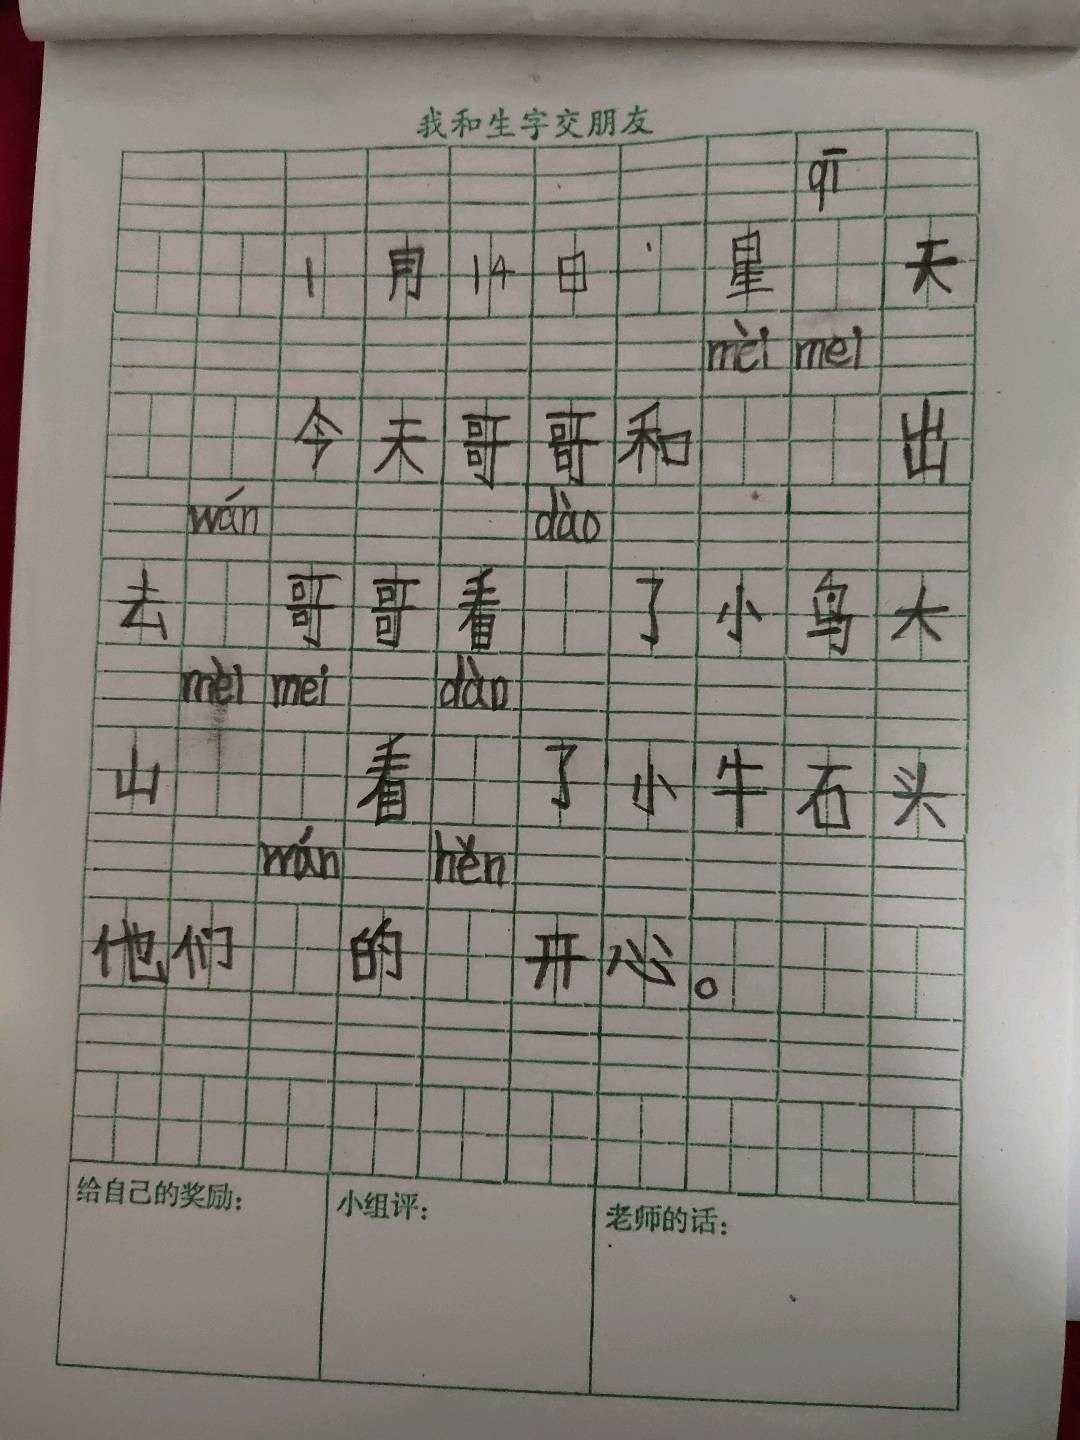 我和生字交朋友
qī
1月14日、星 天
mèi mei
今天哥哥和 出
wán dào
去 哥哥看 了小鸟大
mèi mei dào
山 看 了小牛石头
wán hěn
他们 的 开心。
给自己的奖励: 小组评: 老师的话: